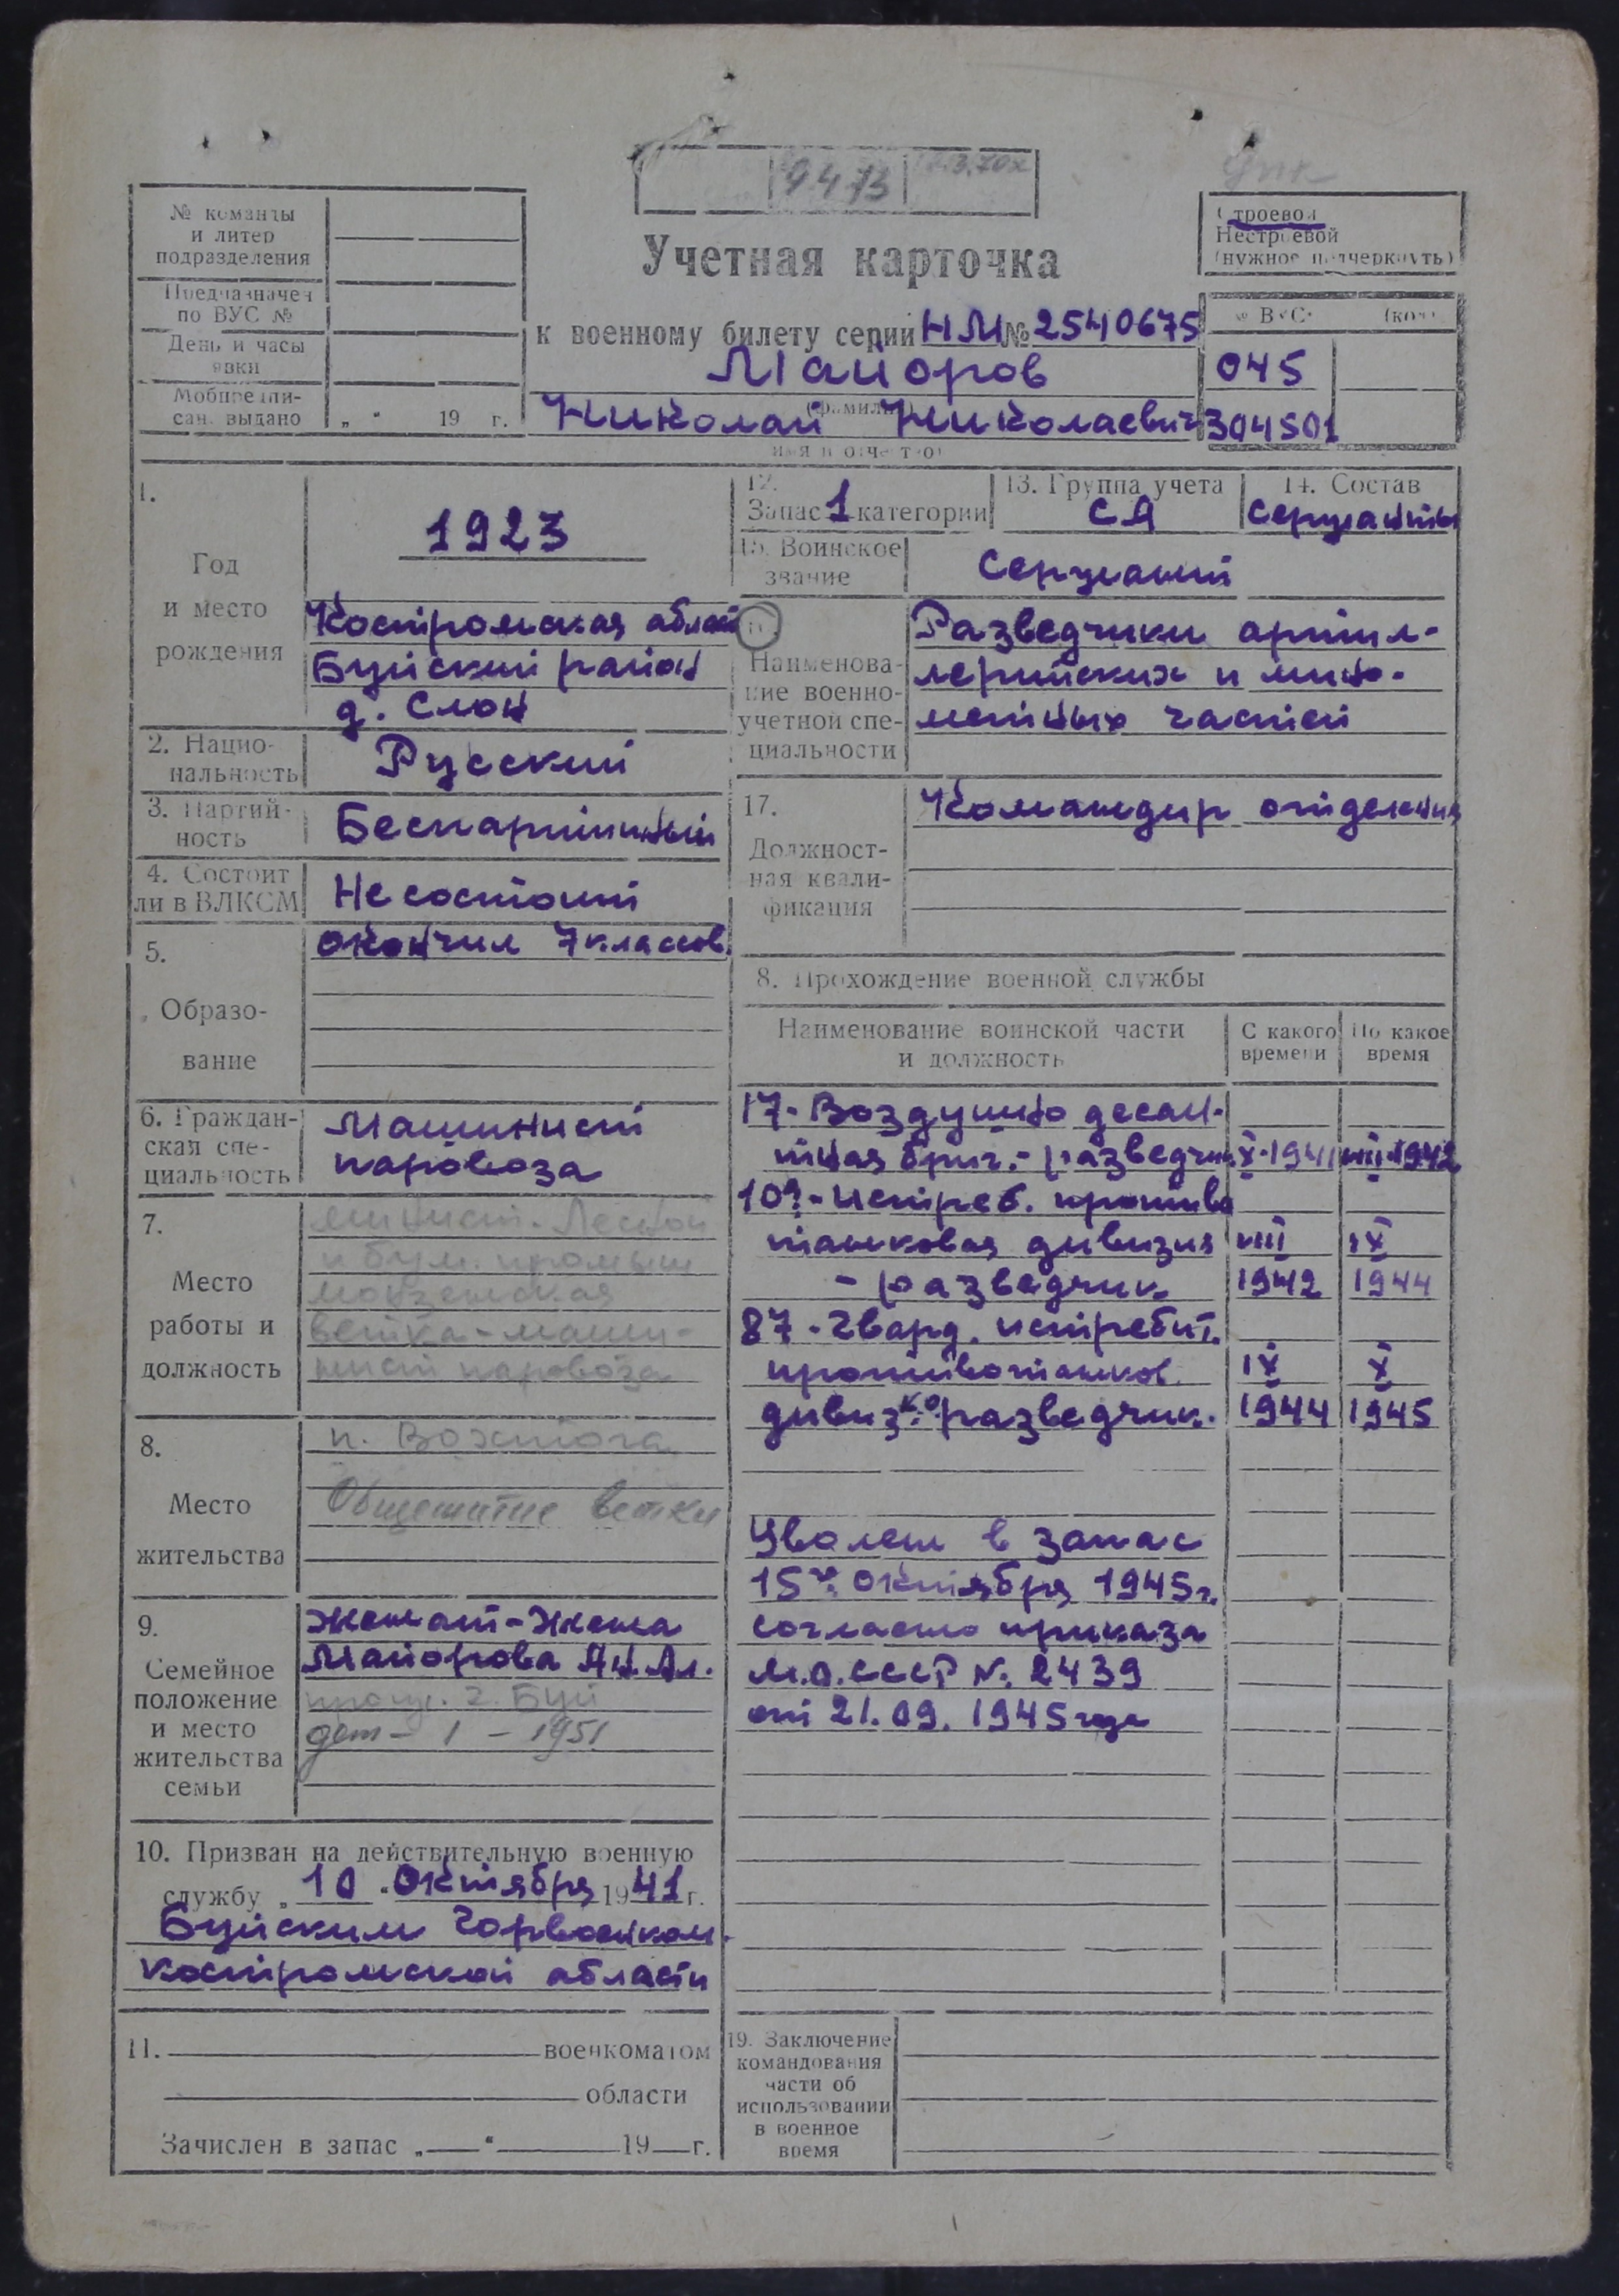 9473
№ команды
и литер
подразделения
Предназначен
по ВУС №
День и часы
явки
Мобпредпи-
сан. выдано
„ " 19 г.
Учетная карточка
к военному билету серии НМ № 2540675
Майоров
(фамилия)
Николай Николаевич
имя и отчество
Строевой
Нестроевой
(нужное подчеркнуть)
№ ВУС
045
304501
1.
Год
и место
рождения
1923
Костромская област
Буйский район
д. Слон
2. Нацио-
нальность
Русский
3. Партий-
ность
Беспартийный
4. Состоит
ли в ВЛКСМ
Не состоит
5.
Образо-
вание
окончил 7 классов.
6. Граждан-
ская спе-
циальность
Машинист
паровоза
7.
Место
работы и
должность
минист. Лесной
и бум. промыш
монзенская
ветка - маши-
нист паровоза
8.
Место
жительства
п. Вохтога
Общежитие ветки
9.
Семейное
положение
и место
жительства
семьи
женат - жена
Майорова Ан. Ал.
г. Буй
дет - 1 - 1951
10. Призван на действительную военную
службу „ 10 " Октября 1941 г.
Буйским Горвоенком.
Костромской области
11. военкоматом
области
Зачислен в запас „ " 19 г.
12.
Запас 1 категории
13. Группа учета
СА
14. Состав
Сержанты
15. Воинское
звание
Сержант
Наименова-
ние военно-
учетной спе-
циальности
Разведчики артил-
лерийских и мино-
метных частей
17.
Должност-
ная квали-
фикация
Командир отделения
8. Прохождение военной службы
Наименование воинской части
и должность
С какого
времени
По какое
время
17 - Воздушно десан-
тная бриг. - разведчик X-1941 VIII-1942
10 - Истреб. противо
танковая дивизия VIII IX
- разведчик 1942 1944
87 - Гвард. истребит.
противотанков. IX X
дивиз. разведчик. 1944 1945
Уволен в запас
15 го Октября 1945 г.
согласно приказа
М.О. СССР №. 2439
от 21.09.1945 года
19. Заключение
командования
части об
использовании
в военное
время